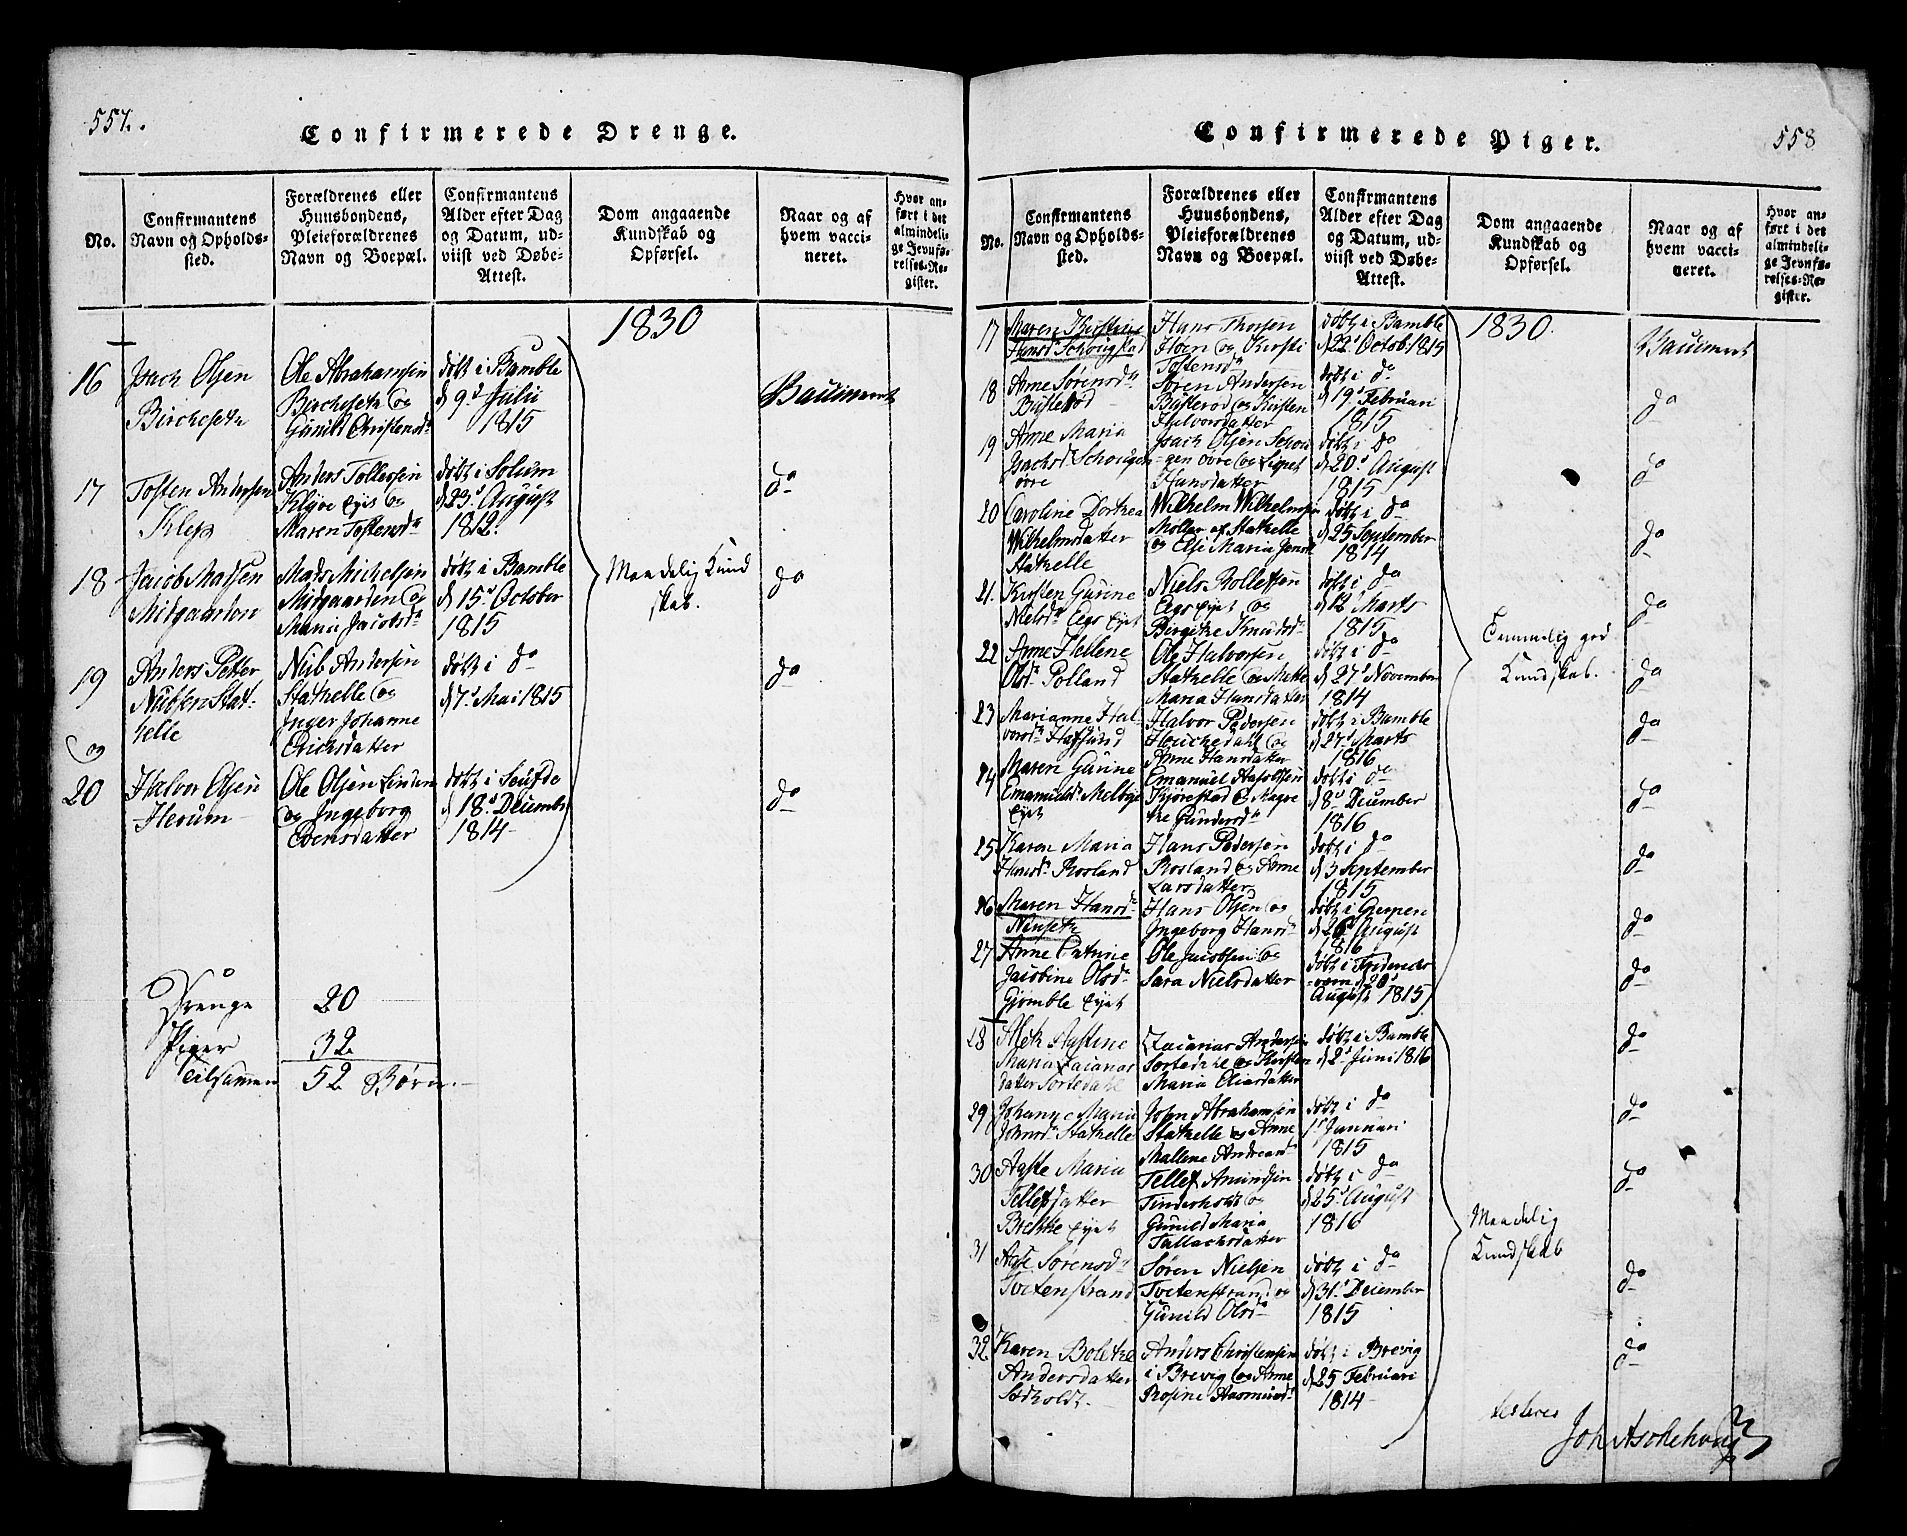 557.
Confirmerede Drenge.
No.
Confirmantens
Navn og Opholds-
sted.
Forældrenes eller
Huusbondens,
Pleieforældrenes
Navn og Boepæl.
Confirmantens
Alder efter Dag
og Datum, ud-
viist ved Døbe-
Attest.
Dom angaaende
Kundskab og
Opførsel.
Naar og af
hvem vacci-
neret.
Hvor an-
ført i det
almindeli-
ge Jevnfø-
relses-Re-
gister.
1830
16
Isach Olsen
Bircheseth
Ole Abrahamsen
Bircheseth og
Gunild Christensdr
døbt i Bamble
d 9de Julii
1815
Vaccineret
17
Tosten Andersen
Klep
Anders Tollefsen
Klove Eyet og
Maren Tostensdr
døbt i Solum
d 23de August
1812.
do
18
Jacob Madsen
Midgaarden
Mads Michelsen
Midgaarden og
Maria Jacobsdr
døbt i Bamble
d 15de October
1815
Maadelig Kund
skab.
do
19
Anders Petter
Nilssen Stat-
helle
Niels Andersen
Stathelle og
Inger Johanne
Erichsdatter
døbt i do
d 7de Mai 1815
do
og
20
Halvor Olsen
Herum
Ole Olsen Linden
og Ingeborg
Evensdatter
døbt i Seufde
d 18de Decembr
1814
do
Drenge 20
Piger 32
Tilsammen 52 Børn.
558
Confirmerede Piger.
No.
Confirmantens
Navn og Opholds-
sted.
Forældrenes eller
Huusbondens,
Pleieforældrenes
Navn og Boepæl.
Confirmantens
Alder efter Dag
og Datum, ud-
viist ved Døbe-
Attest.
Dom angaaende
Kundskab og
Opførsel.
Naar og af
hvem vacci-
neret.
Hvor an-
ført i det
almindeli-
ge Jevnfø-
relses-Re-
gister.
1830.
17
Maren Kirstine
Hansdr
Hans Thorsen
Hoen og Kirsti
Tostensdr
døbt i Bamble
d 22de Octob. 1815
Vaccineret
18
Anne Sørensdr
Busterød
Søren Andersen
Busterød og Kirsten
Halvorsdatter
døbt i do
d 19de Februari
1815
do
19
Anne Maria
Isachsdr Schougen
øvre
Isach Olsen Schou
gen øvre og Signet
Hansdatter
døbt i do
d 20de August
1815
do
20
Caroline Dorthea
Wilhelmsdatter
Stathelle
Wilhelm Wilhelmsen
Møller af Stathelle
og Else Maria Jensdr
døbt i do
d 25 September
1814
do
21.
Kirsten Gurine
Nielsdr Eegs Eyet
Niels Rollefsen
Eegs Eyet og
Birgithe Knudsdr
døbt i do
d 12de Marts
1815
do
22
Anne Hellene
Olsdr Polland
Ole Halvorsen
Stathelle og Mette
Maria Hansdatter
døbt i do
d 27de November
1814
Temmelig god
Kundskab.
do
23
Marianne Hal-
vorsdr Hafsund
Halvor Pedersen
Houchedahl og
Anne Hansdatter
døbt i Bamble
d 27de Marts
1816
do
24
Maren Gurine
Emanuelsdr Melbye
Eyet
Emanuel
Kjørestad og Magre
the Gundersdr
døbt i do
d 8de December
1816
do
25
Karen Maria
Hansdr Rosland
Hans Pedersen
Rosland og Anne
Larsdatter
døbt i do
d 3 September
1815
do
26
Maren Hansdr
Nenseth
Hans Olsen og
Ingeborg Hansdr
døbt i Gierpen
d 26 August
1816
do
27
Anne Catrine
Jacobine Olsdr
Gjømble Eyet
Ole Jacobsen og
Sara Nielsdatter
døbt i Fridericks
værn d 20de
August 1815
do
28
Maria Zacarias
datter Sortedahl
Zacarias Andersen
Sortedahl og Kirsten
Maria Eliasdatter
døbt i Bamble
d 2de Juni 1816
do
29
Johanne Maria
Johnsdr Stathelle
John Abrahamsen
Stathelle og Anne
Mallene Andreasdr
døbt i do
1de Januari
1815
do
30
Aaste Maria
Tellefsdatter
Brekke Eyet
Tellef Amundsen
Tinderholt og
Gunild Maria
Tallachsdatter
døbt i do
d 25de August
1816
do
Maadelig
Kundskab
31
Aase Sørensdr
Tvetenstrand
Søren Nielsen
Tvetenstrand og
Gunild Olsdr
døbt i do
d 31de December
1815
do
32
Karen Bolethe
Andersdatter
Sødholdt
Anders Christensen
i Brevig og Anne
Rosine Rasmusdr
døbt i Brevig
d 25 Februari
1814
do
testeres